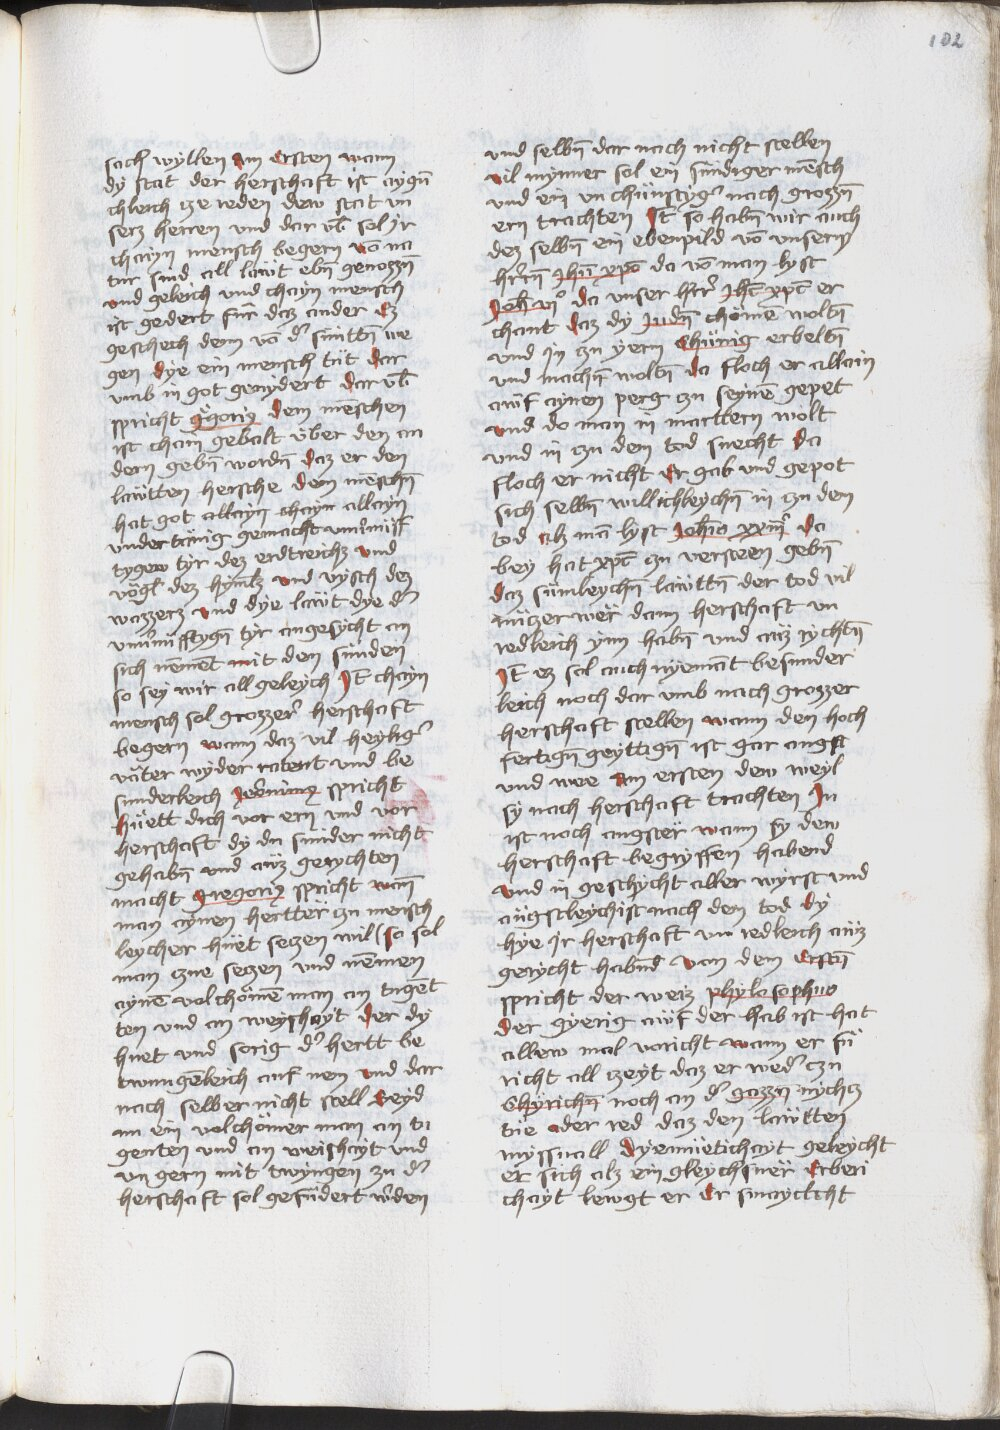 102
sach wyllen am ersten wann
dy stat der herschaft ist aygn̄
chleich cze reden dew stat vn
sers herren und dar vb̄ sol yr
chayn mensch begern vō na
tur sind all läwt ebn̄ genozzn̄
vnd geleich vnd chayn mensch
ist gedert für daz ander Ez
geschech denn vō d' sünttn̄ we
gen dye ein mensch tüt dar
vmb in got genydert dar vb̄
spricht Ggoriꝰ dem menschen
ist chain gebalt vber den an
dern gebn̄ wordn̄ daz er den
läwtten hersche dem menschn̄
hat got allayn chayn allayn
vnder tänig gemacht vnuernüff
tygew tyr dez erdtreichz vnd
vögl dez hymlz vnd vysch dez
wazzerz vnd dye läwt dye d'
vnu'nüfftygn̄ tyr angesycht an
sich nement mit den sünden
so sey wir all geleych It̄ chayn
mensch sol grozzer' herschaft
begern wann daz vil heylig'
väter wyder ratent vnd be
sunderleich Jeronimꝰ spricht
hüett dich vor ern vnd vor
herschaft dy du sunder nicht
gehabn̄ vnd auz gerychten
macht Gregoriꝰ spricht wān
man aynen hertter zu mensch
leycher huet seczen wil so sol
man czue seczen vnd nemen
aynē volchömē man an tugēt
ten vnd an weyshayt der dy
huet vnd sorig d' hertt be
twungēleich auf nem vnd dar
nach selber nicht stell Seyd
nu ein volchomer man an tu
genten vnd an weishayt vnd
vn gern mit twyngen zu d'
herschaft sol gefüdert w'den
vnd selbn̄ dar nach nicht stellen
vil mynner sol ein sündiger mēsch
vnd ein vn chünstyg' nach grozzn̄
ern trachten It̄ so habn̄ wir auch
dez selbn̄ ein ebenpild vō vnserm
hr̄ēn Jhū xpō da vō man lyst
Joh̄ vi° da vnser hr̄r Jhc̄ xpc̄ er
chant daz dy Judn̄ chömē woltn̄
vnd in zu yerm Chünig erbelln̄
vnd machn̄ woltn̄ da floch er allain
auf aynen perg zu seynē gepet
vnd do man in martern wolt
vnd in zu dem tod suecht da
floch er nicht er gab vnd gepot
sich selbn̄ willichleychn̄ in zu dem
tod alz mā lyst Johīs xviii° da
bey hat xpc̄ zu versteen gebn̄
daz sümleychn̄ läwttn̄ der tod vil
nüczer wer dann herschaft vn
redleich ynn habn̄ vnd auz rychtn̄
It̄ ez sol auch nyemāt besunder
leich noch dar vmb nach grozzer
herschaft stellen wann den hoch
fertign̄ geyttign̄ ist gar angst
vnd wee am ersten dew weyl
sy nach herschaft trachten In
ist noch angster wann sy dew
herschaft begryffen habend
vnd in geschycht aller wyrst vnd
angstleychist nach dem tod dy
hye ir herschaft vn redleich auz
gerycht habnd von dem erstn̄
spricht der weiz phylosophus
der gyerig auf der hab ist hat
allew mal voricht wann er fü
richt all czeyt daz er wed' czu
Chyrichn̄ noch an d' gazzn̄ nychcz
tüe oder red daz den läwtten
myssuall dyemüetichayt geleycht
er sich alz ein gleychsner erberi
chayt lewgt er er smaychlt